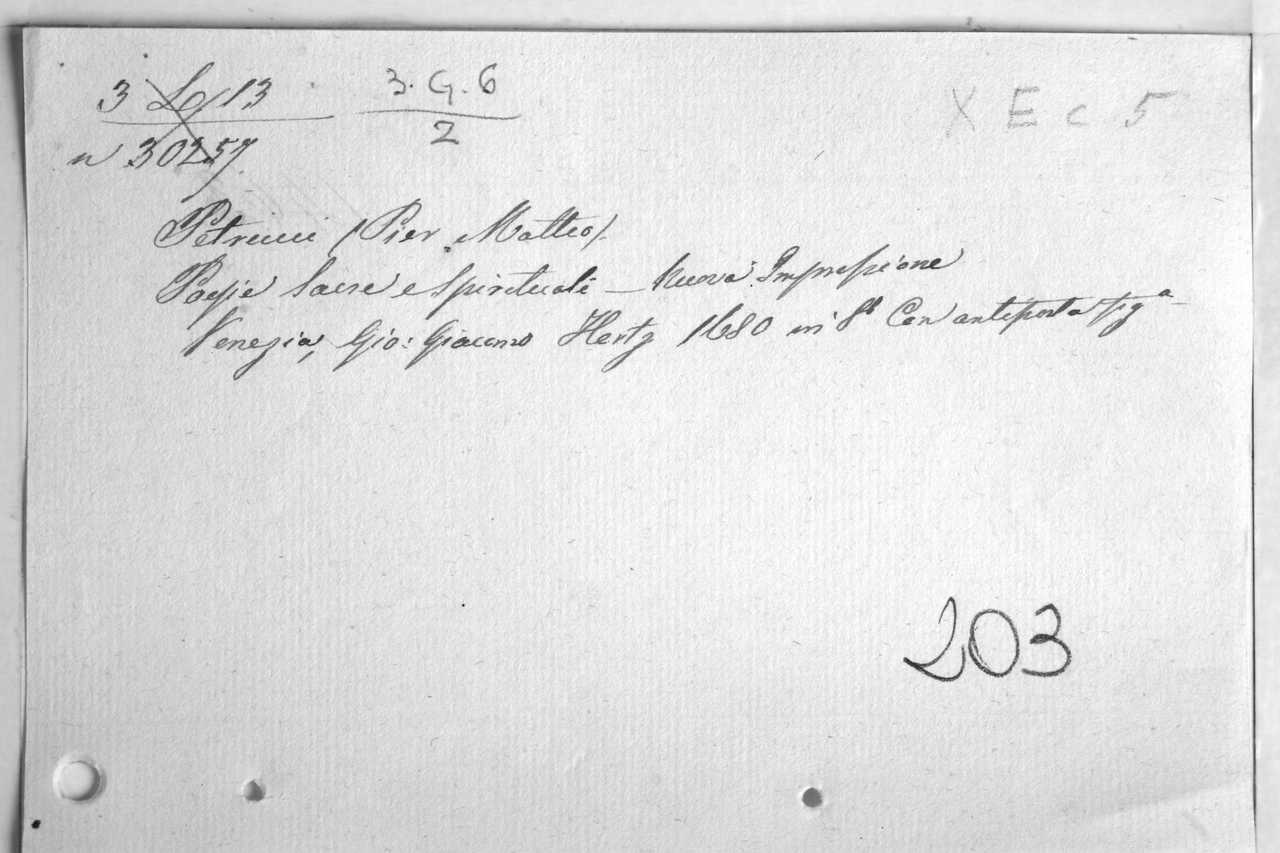 3 Lo 13
3. G. 6
2
X E c 5
n 30257
Petrucci (Pier Matteo)
Poesie Sacre e Spirituali — Nuova Impressione
Venezia, Gio: Giacomo Hertz 1680 in 8º Con antiporta figª
203